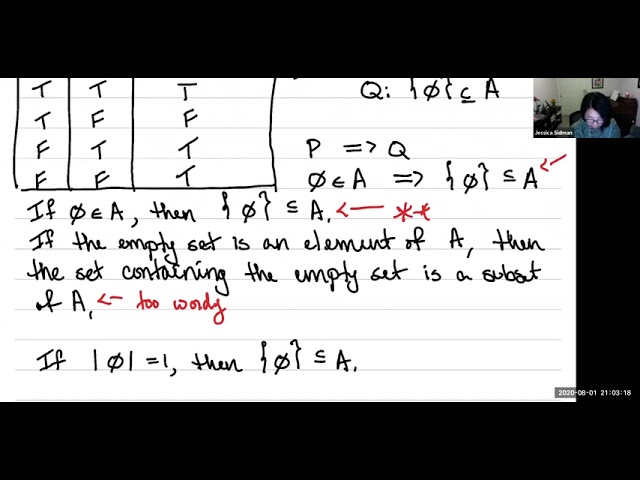 T T T
Q: {∅} ⊆ A
T F F
F T T
P => Q
F F T
∅ ∈ A => {∅} ⊆ A ←
If ∅ ∈ A, then {∅} ⊆ A. ← **
If the empty set is an element of A, then
the set containing the empty set is a subset
of A. ← too wordy
If |∅| = 1, then {∅} ⊆ A.
Jessica Sidman
2020-08-01 21:03:18